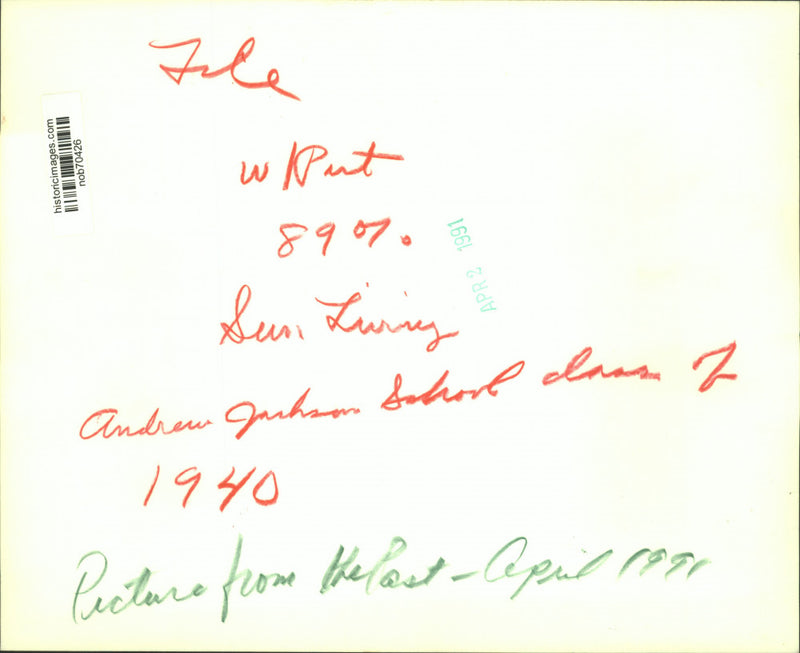 File
historicimages.com
nob70426
w/Put
89%
APR 2 1991
Sun. Living
Andrew Jackson School class of
1940
Picture from the Past - April 1991